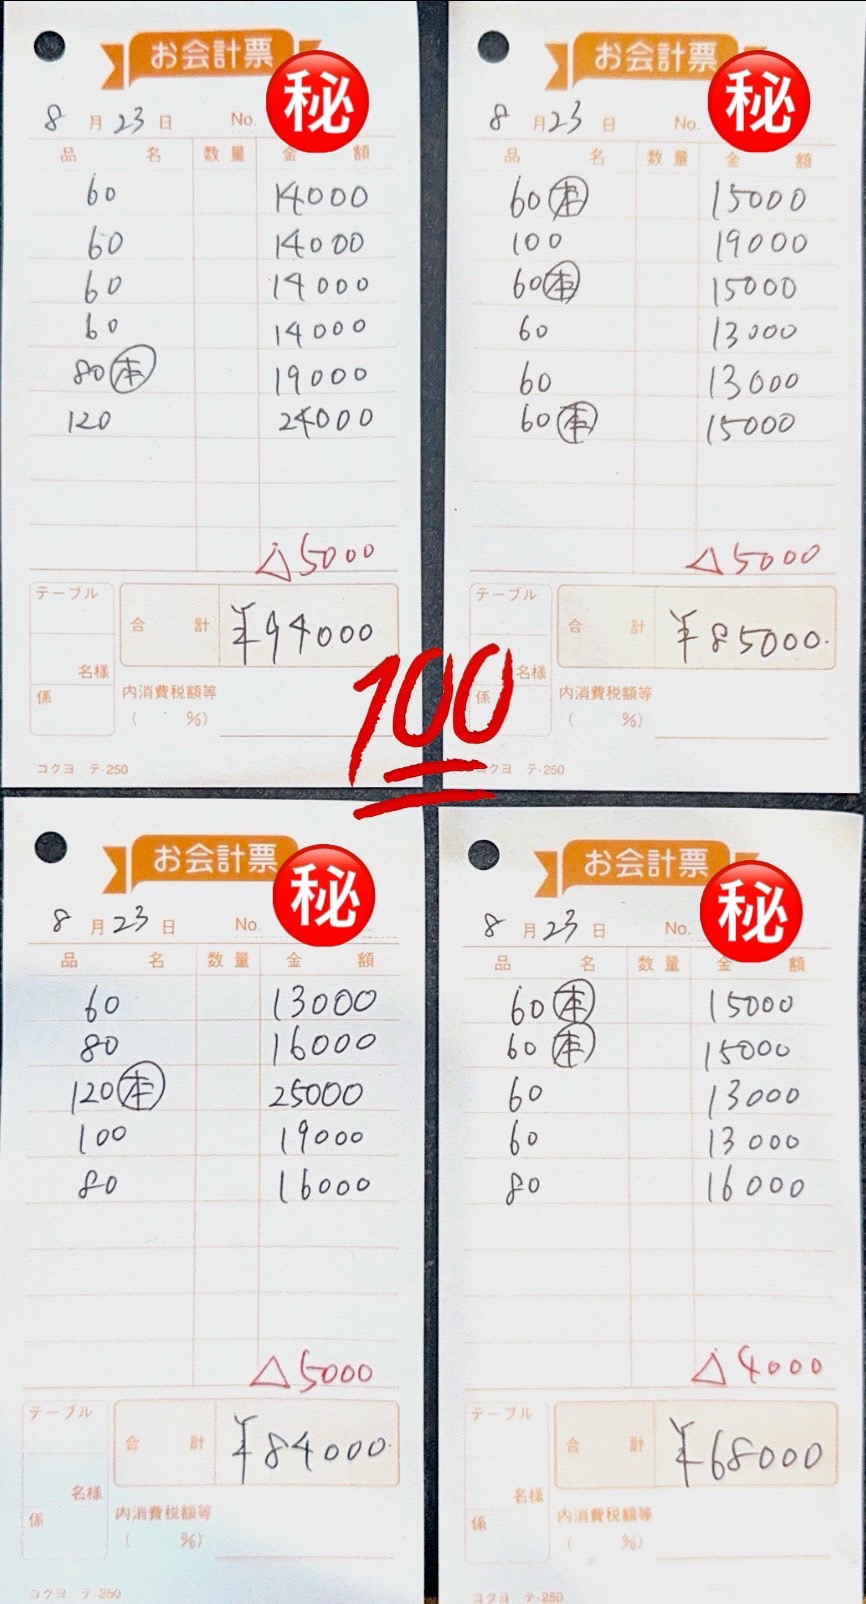 お会計票
㊙
8月23日 No.
品名 数量 金額
60 14000
60 14000
60 14000
60 14000
80㊍ 19000
120 24000
△5000
テーブル
名様
係
合計 ¥94000
内消費税額等
( %)
コクヨ テ-250
お会計票
㊙
8月23日 No.
品名 数量 金額
60(本) 15000
100 19000
60(本) 15000
60 13000
60 13000
60(本) 15000
△5000
テーブル
名様
係
合計 ¥85000.
内消費税額等
( %)
コクヨ テ-250
100
お会計票
㊙
8月23日 No.
品名 数量 金額
60 13000
80 16000
120(本) 25000
100 19000
80 16000
△5000
テーブル
名様
係
合計 ¥84000.
内消費税額等
( %)
コクヨ テ-250
お会計票
㊙
8月23日 No.
品名 数量 金額
60(本) 15000
60(本) 15000
60 13000
60 13000
80 16000
△4000
テーブル
名様
係
合計 ¥68000
内消費税額等
( %)
コクヨ テ-250